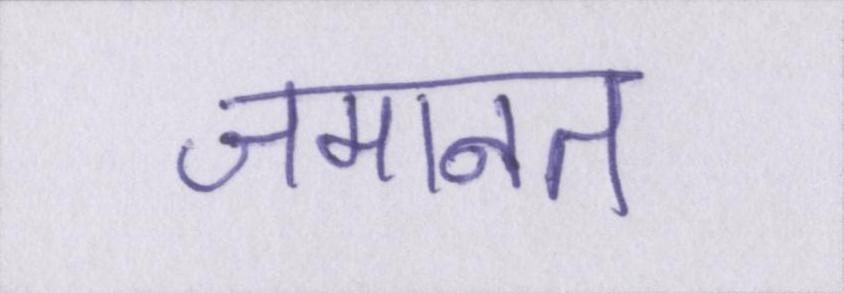 जमानत